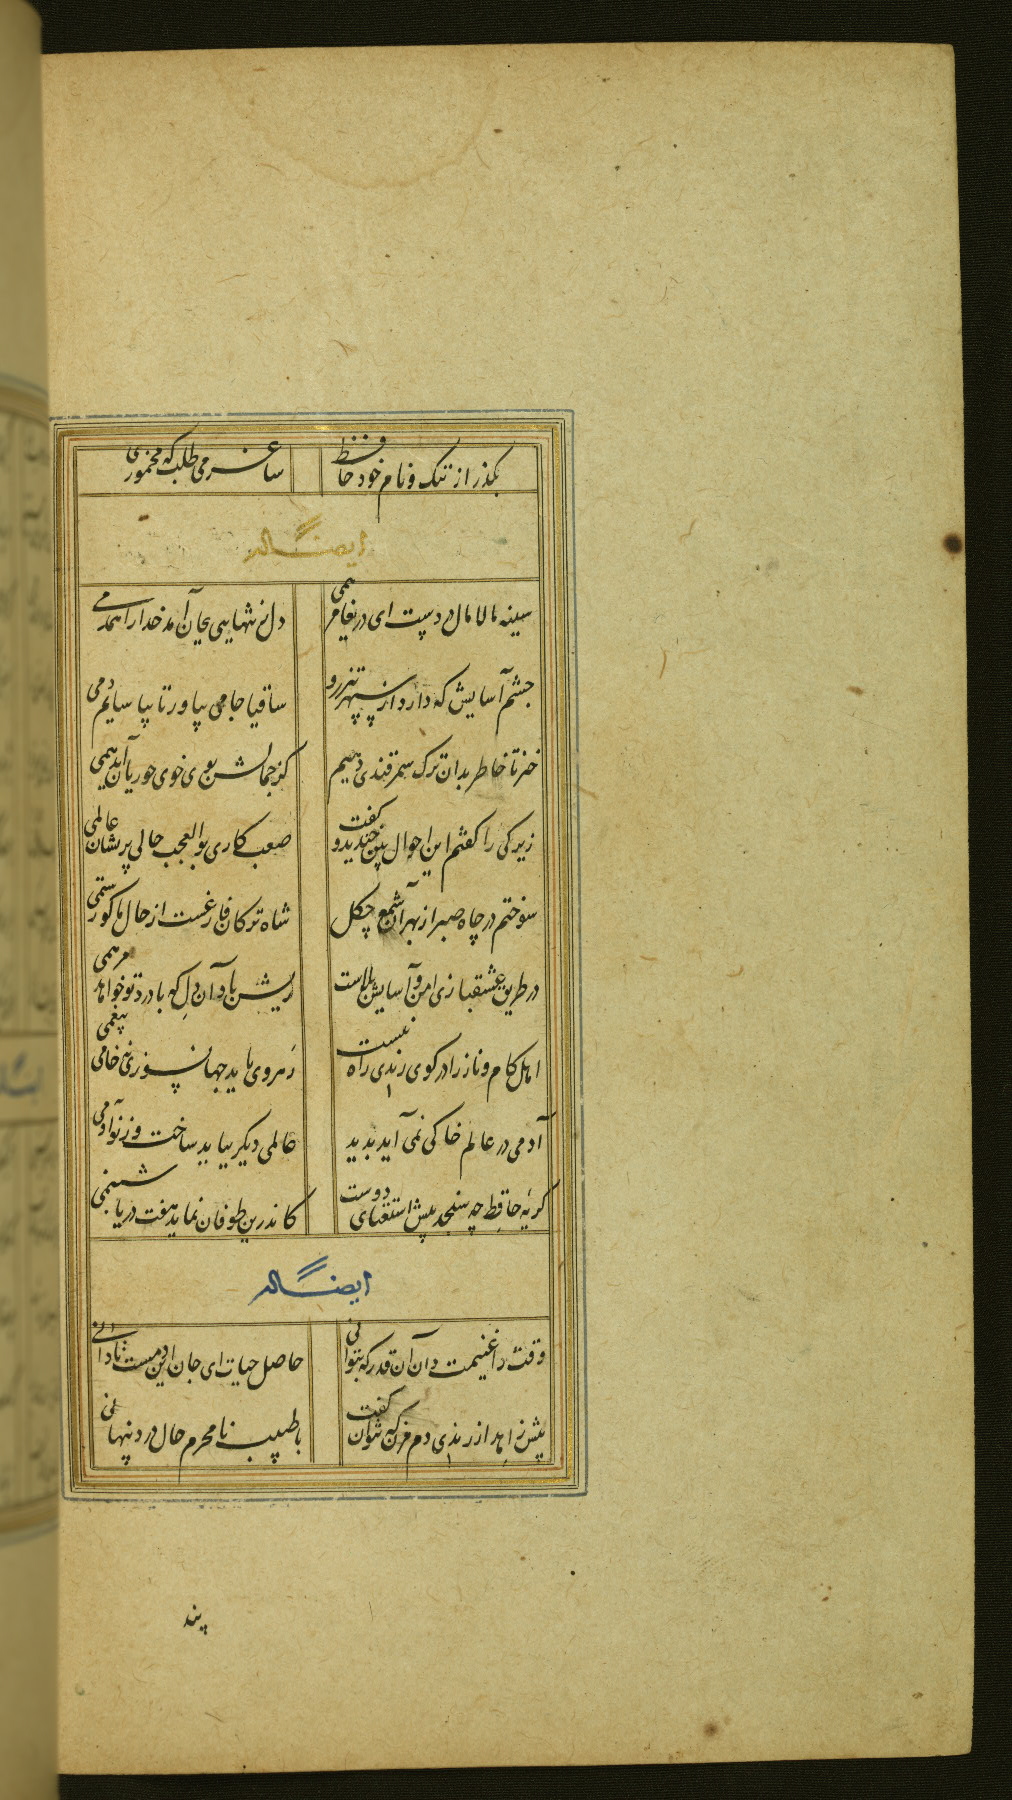 بگذر از ننگ و نام خود حافظ
ساغر می طلب که مخموری
ایضا له
سینه مالامال دردست ای دریغا مرهمی
دل ز تنهایی بجان آمد خدا را همدمی
چشم آسایش که دارد از سپهر تیزرو
ساقیا جامی بیاور تا بیاسایم دمی
خیز تا خاطر بدان ترک سمرقندی دهیم
کز جمالش بوی خوی حوریان آید همی
زیرکی را گفتم این احوال بین خندید و گفت
صعب کاری بوالعجب حالی پریشان عالمی
سوختم در چاه صبر از بهر آن شمع چگل
شاه ترکان فارغست از حال ما کو رستمی
در طریق عشقبازی امن و آسایش بلاست
ریش باد آن دل که با درد تو خواهد مرهمی
اهل کام و ناز را در کوی رندی راه نیست
رهروی باید جهانسوزی نه خامی بیغمی
آدمی در عالم خاکی نمی آید بدید
عالمی دیگر بباید ساخت وز نو آدمی
گریهٔ حافظ چه سنجد پیش استغنای دوست
کاندرین طوفان نماید هفت دریا شبنمی
ایضا له
وقت را غنیمت دان آن قدر که بتوانی
حاصل حیات ای جان این دمست نادانی
پیش زاهد از رندی دم مزن که نتوان گفت
با طبیب نامحرم حال درد پنهانی
پند